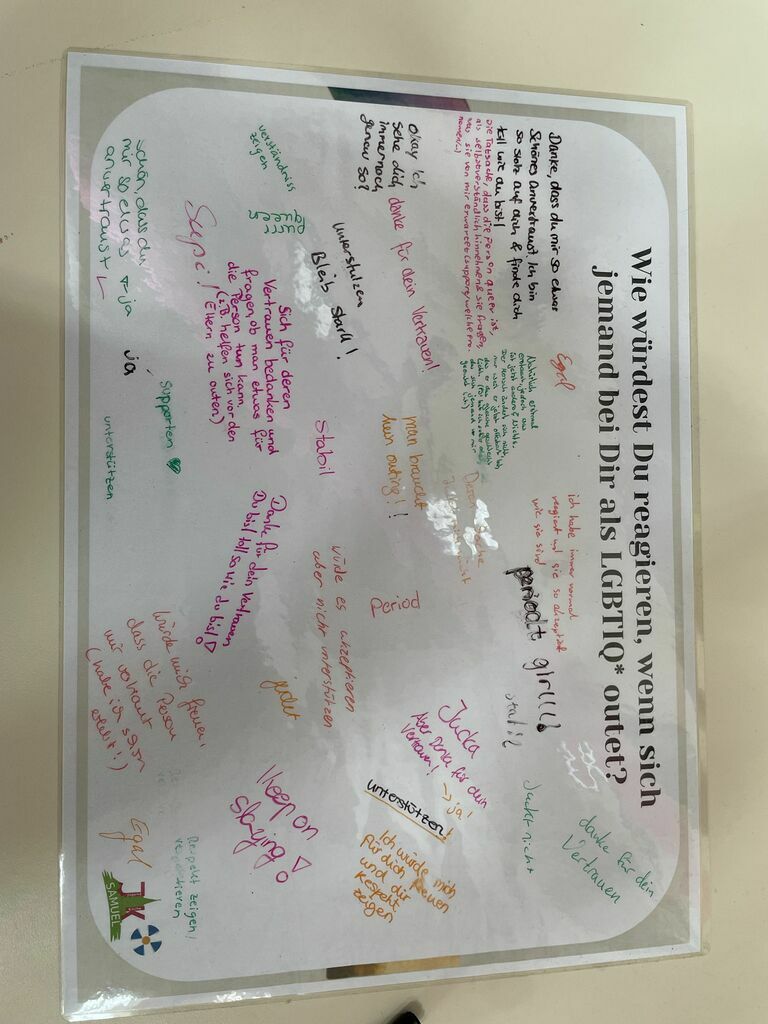 Wie würdest Du reagieren, wenn sich
jemand bei Dir als LGBTIQ* outet?
Danke, dass du mir so etwas
Schönes anvertraust. Ich bin
so stolz auf dich & finde dich
toll wie du bist!
Die Tatsache, dass die Person queer ist,
als selbstverständlich hinnehmen & sie fragen,
was sie von mir erwartet (support, welche Pro-
nomen...)
Egal
Natürlich erstmal
ist jetzt anderes nichts.
Der Mensch ändert sich nicht
nur weil er jetzt
ich habe immer normal
reagiert und sie so akzeptiert
wie sie sind
periodt girl!!!
stabil
Juckt nicht
danke für dein
Vertrauen
Okay ich
sehe dich
immernoch
genau so?
danke für dein Vertrauen!
man braucht
kein outing!!
Period
Jucka
Aber Danke für dein
Vertrauen!
→ ja!
unterstützen!
Ich würde mich
für dich freuen
und dir
Respekt
zeigen
verständniss
zeigen
unterstützen
Bleib stark!
Stabil
würde es akzeptieren
aber nicht unterstützen
Supi!
Sich für deren
Vertrauen bedanken und
fragen, ob man etwas für
die Person tun kann.
(z.B. helfen sich vor den
Eltern zu outen)
Danke für dein Vertrauen
Du bist toll so wie du bist!
juckt
Keep on
slaying!
schön, dass du
mir so etwas
anvertraust
ja
ja
Supporten ♥
unterstützen
würde mich freuen,
dass die Person
mir vertraut
(habe ich schon
erlebt!)
Egal
Respekt zeigen/
JK
SAMUEL